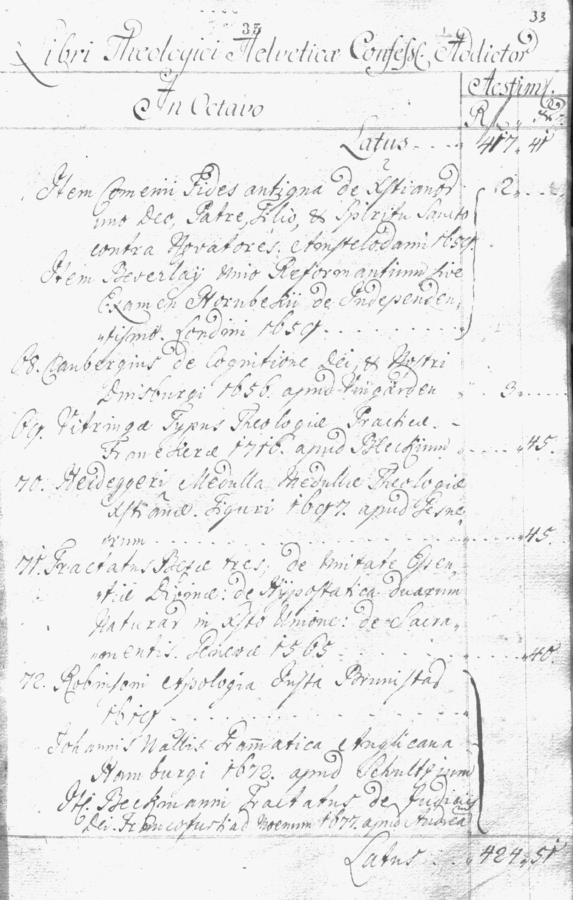 33
33
Libri Theologici Helveticæ Confess. Addictor
Aestim.
In Octavo
Rf. xr.
Latus . . . . 417. 41
Item Comenii Fides antiqua de Xstianor
uno Deo, Patre, Filio, & Spiritu Sancto
contra Novatores. Amstelodami 1659. 2. . . .
Item Beverlay Unio Reformantium sive
Examen Hornbekii de Independen„
„tismo. Londini 1659 . . . . . . . . . .
68. Claubergius de Cognitione Dei, & Nostri
Duisburgi 1656. apud Wingarden „ 3. . . . .
69. Vitringæ Typus Theologiæ Practicæ. –
Franekeræ 1716. apud Bleckium „ . . . . „ 45.
70. Heideggeri Medulla Medullæ Theologiæ
Xstianæ. Tiguri 1697. apud Gesne„
„rum . . . . . . . . . . . . . . „ . . . . „ 45.
71. Tractatus Bezæ tres; de Unitate Essen„
„tiæ Divinæ: de Hypostatica duarum
Naturar in Xsto Unione: de Sacra„
„mentis. Genevæ 1565 . . . . . . . . . . „ 40.
72. Robinsoni Apologia Justa Brunistar
1619 . . . . . . . . . . . . . .
Johannis Wallis Gramatica Anglicana
Hamburgi 1672. apud Schultzium
It. Beckmanni Tractatus de Judiciis
Dei. Francofurti ad Moenum 1677. apud Andreã
Latus . . . „ 424. 51